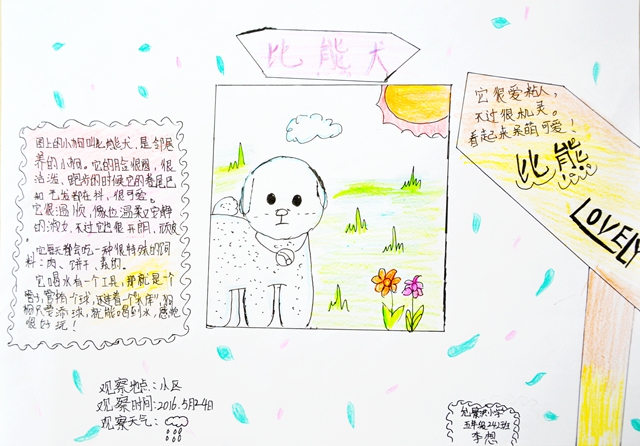 比熊犬
图上的小狗叫比熊犬，是邻居
养的小狗。它的脸很圆，很
活泼，跑步的时候它的卷尾巴
和毛发都在抖，很可爱。
它很温顺，像位温柔又安静
的淑女，不过它也很开朗，顽皮。
它每天都会吃一种很特殊的饲
料：肉、饼干、素的。
它喝水有一个工具，那就是一个
管子，管有个球，连着一个"水库"，狗
狗只要添球，就能喝到水，感觉
很好玩！
它很爱粘人，
不过很机灵。
看起来呆萌可爱！
比熊
LOVELY
观察地点：小区
观察时间：2016.5月24日
观察天气：
五年级242班
李想